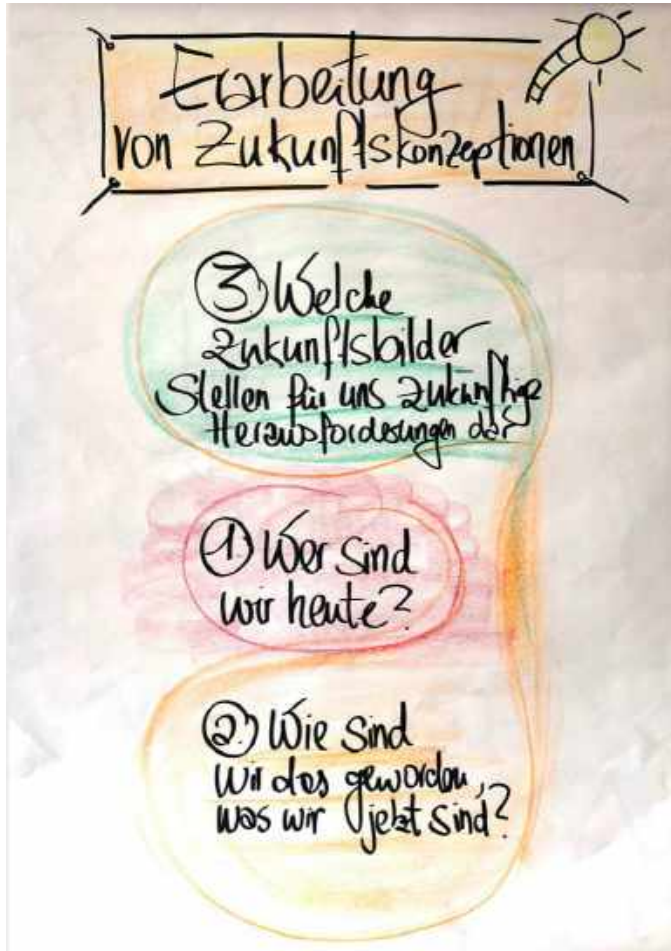 Erarbeitung
von Zukunftskonzeptionen
③ Welche
Zukunftsbilder
Stellen für uns zukünftige
Herausforderungen dar
① Wer sind
wir heute?
② Wie sind
wir das geworden,
was wir jetzt sind?